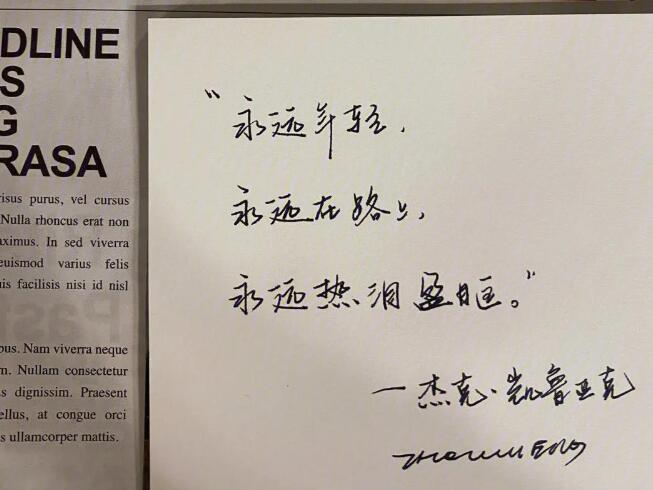 DLINE
S
G
RASA
risus purus, vel cursus
Nulla rhoncus erat non
aximus. In sed viverra
euismod varius felis
is facilisis nisi id nisl
Past
ous. Nam viverra neque
m. Nullam consectetur
s dignissim. Praesent
ellus, at congue orci
s ullamcorper mattis.
“永远年轻，
永远在路上，
永远热泪盈眶。”
一杰克·凯鲁亚克